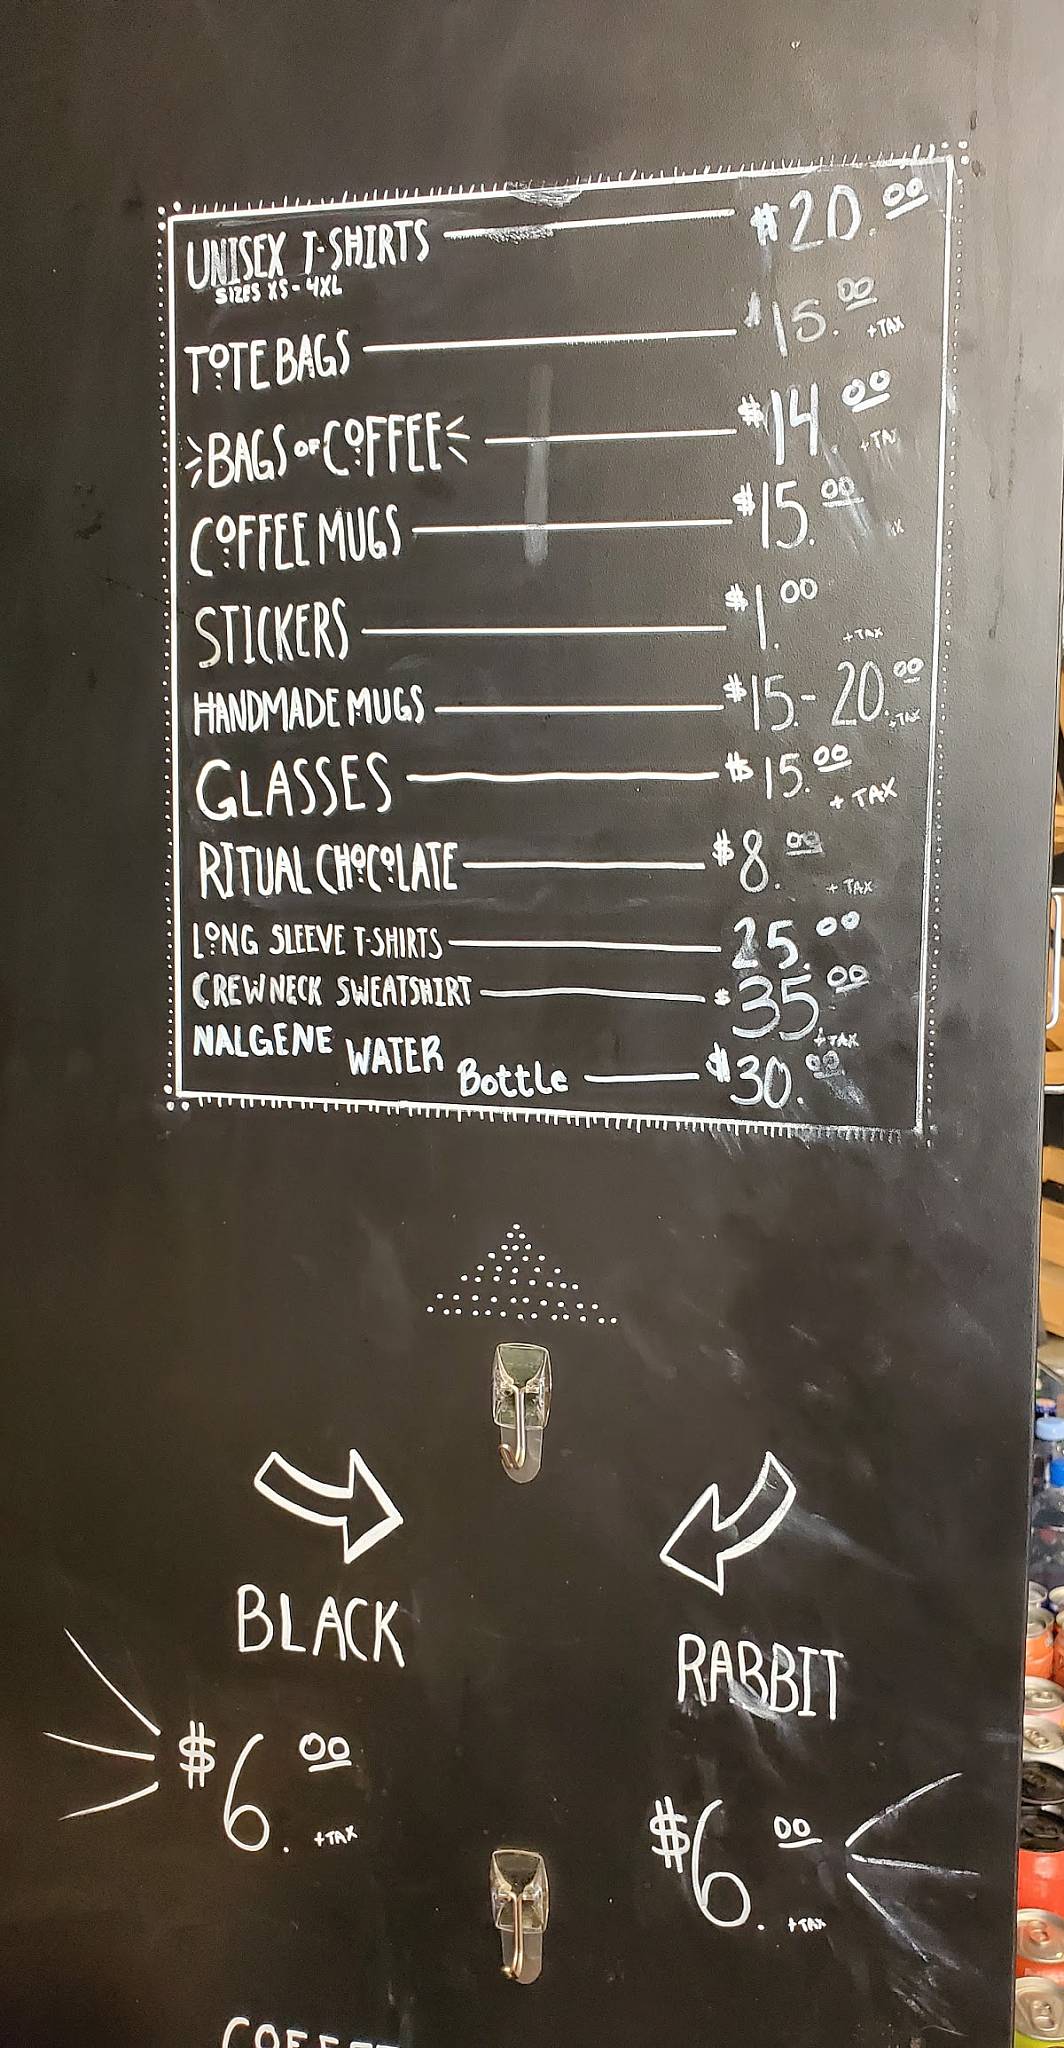 UNISEX T-SHIRTS $20.00
SIZES XS-4XL
TOTE BAGS $15.00 +TAX
BAGS OF COFFEE $14.00 +TAX
COFFEE MUGS $15.00
STICKERS $1.00 +TAX
HANDMADE MUGS $15.-20.00 +TAX
GLASSES $15.00 + TAX
RITUAL CHOCOLATE $8.00 +TAX
LONG SLEEVE T-SHIRTS 25.00
CREWNECK SWEATSHIRT $35.00 +TAX
NALGENE WATER Bottle $30.00
BLACK
RABBIT
$6.00 +TAX
$6.00 +TAX